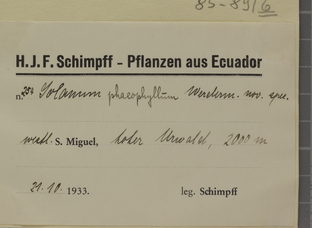 85-89/6
H.J.F. Schimpff - Pflanzen aus Ecuador
n. 254 Solanum phaeophyllum Werderm. nov. spec.
westl. S. Miguel, hoher Urwald, 2000 m
21. 10. 1933. leg. Schimpff